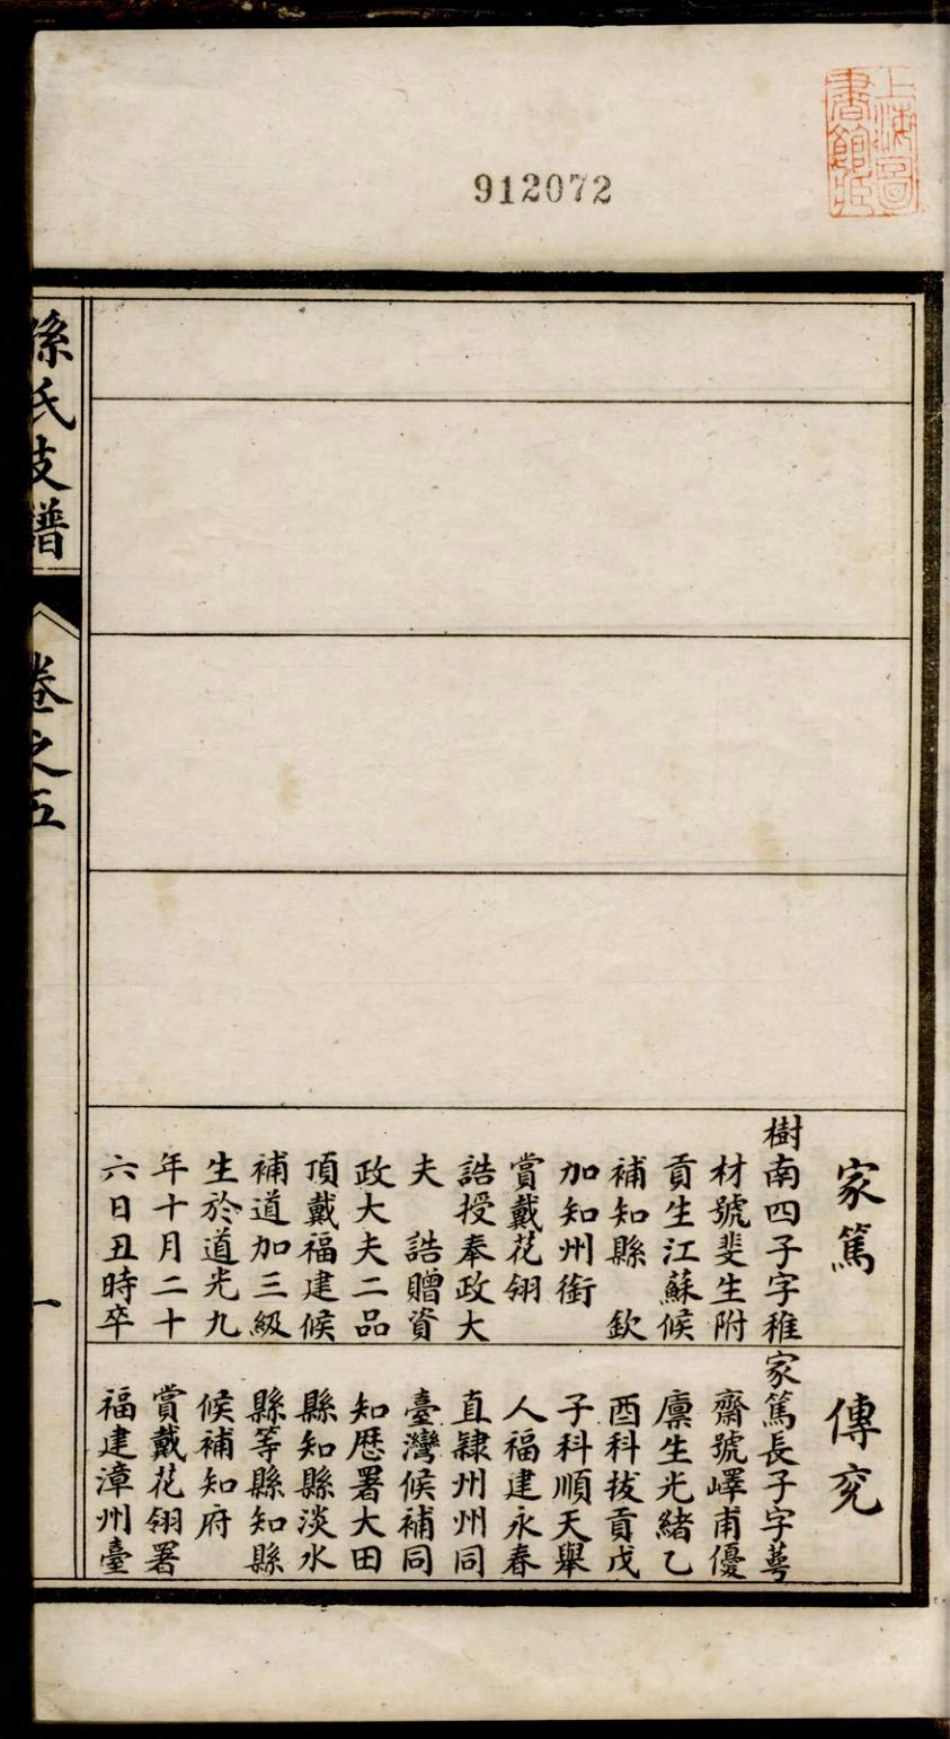 上海圖
書館藏
912072
家篤
樹南四子字稚
材號斐生附
貢生江蘇候
補知縣　欽
加知州銜
賞戴花翎
誥授奉政大
夫　誥贈資
政大夫二品
頂戴福建候
補道加三級
生於道光九
年十月二十
六日丑時卒
傳兖
家篤長子字萼
齋號嶧甫優
廩生光緒乙
酉科拔貢戊
子科順天舉
人福建永春
直隸州州同
臺灣候補同
知歷署大田
縣知縣淡水
縣等縣知縣
候補知府
賞戴花翎署
福建漳州臺
孫氏支譜
卷之五
一